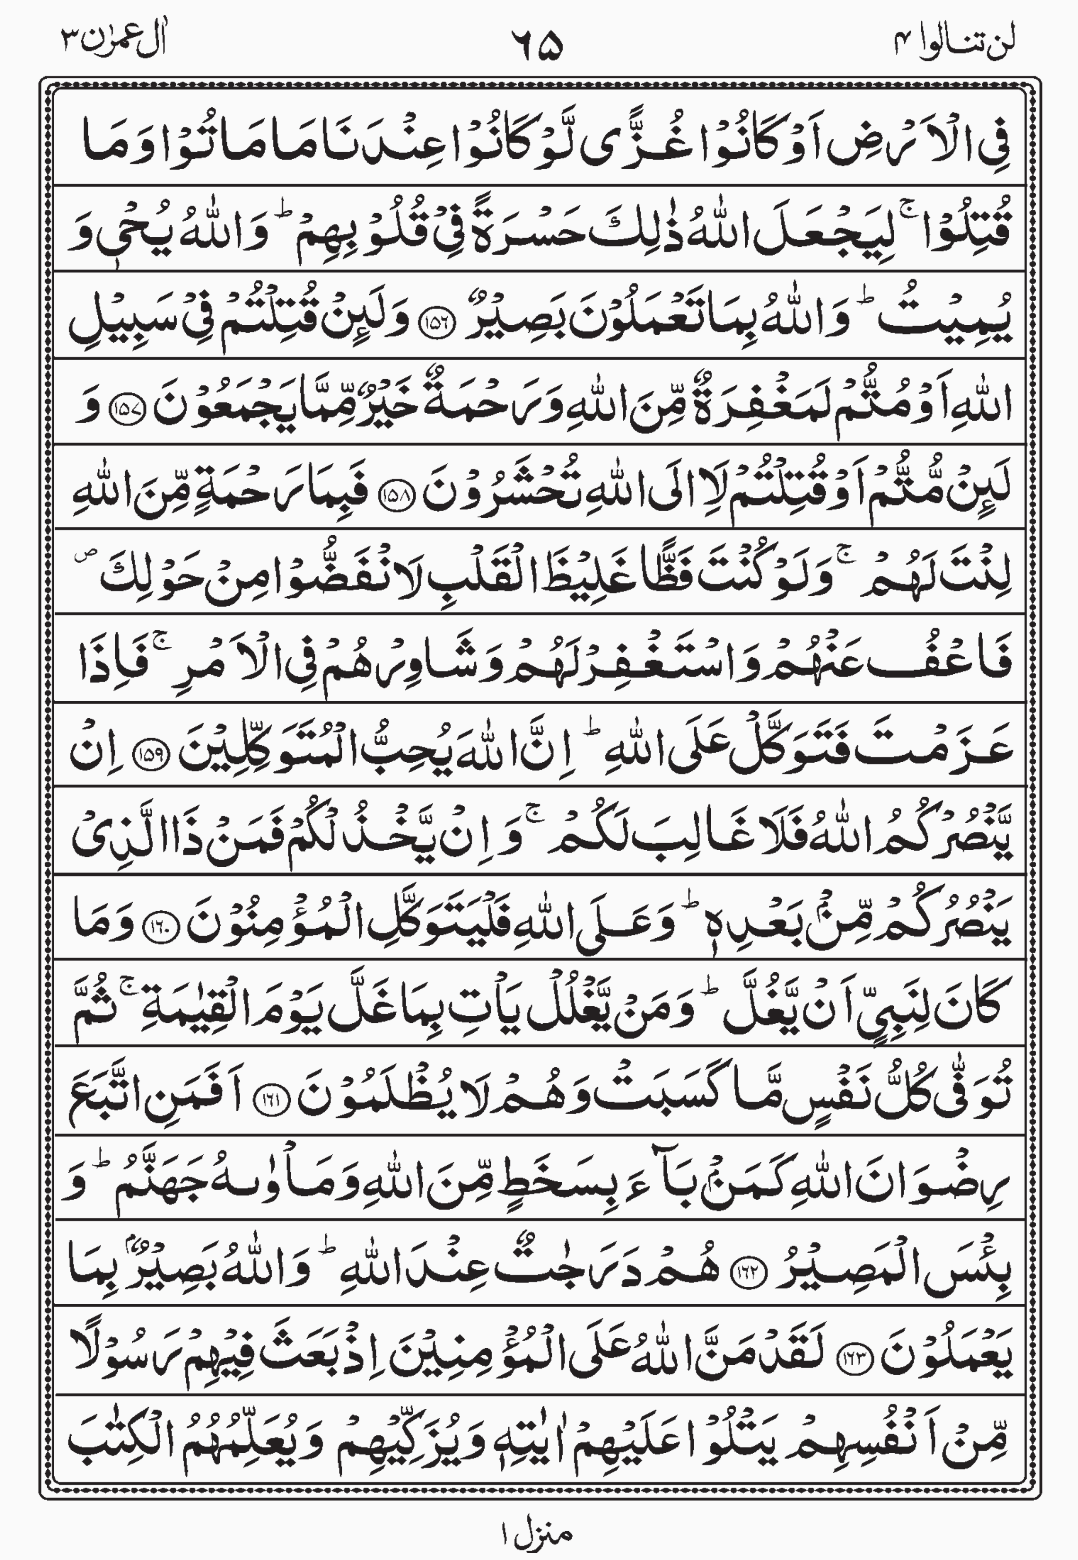 لن تنالوا ۴ ۶۵ اٰل عمرٰن ۳
فِی الْاَرْضِ اَوْ كَانُوْا غُزًّی لَّوْ كَانُوْا عِنْدَنَا مَا مَاتُوْا وَمَا
قُتِلُوْا ۚ لِیَجْعَلَ اللّٰهُ ذٰلِكَ حَسْرَةً فِیْ قُلُوْبِهِمْ ؕ وَاللّٰهُ یُحْیٖ وَ
یُمِیْتُ ؕ وَاللّٰهُ بِمَا تَعْمَلُوْنَ بَصِیْرٌ ۝۱۵۶ وَلَىِٕنْ قُتِلْتُمْ فِیْ سَبِیْلِ
اللّٰهِ اَوْ مُتُّمْ لَمَغْفِرَةٌ مِّنَ اللّٰهِ وَرَحْمَةٌ خَیْرٌ مِّمَّا یَجْمَعُوْنَ ۝۱۵۷ وَ
لَىِٕنْ مُّتُّمْ اَوْ قُتِلْتُمْ لَاِالَی اللّٰهِ تُحْشَرُوْنَ ۝۱۵۸ فَبِمَا رَحْمَةٍ مِّنَ اللّٰهِ
لِنْتَ لَهُمْ ۚ وَلَوْ كُنْتَ فَظًّا غَلِیْظَ الْقَلْبِ لَانْفَضُّوْا مِنْ حَوْلِكَ ۪
فَاعْفُ عَنْهُمْ وَاسْتَغْفِرْ لَهُمْ وَشَاوِرْهُمْ فِی الْاَمْرِ ۚ فَاِذَا
عَزَمْتَ فَتَوَكَّلْ عَلَی اللّٰهِ ؕ اِنَّ اللّٰهَ یُحِبُّ الْمُتَوَكِّلِیْنَ ۝۱۵۹ اِنْ
یَّنْصُرْكُمُ اللّٰهُ فَلَا غَالِبَ لَكُمْ ۚ وَاِنْ یَّخْذُلْكُمْ فَمَنْ ذَا الَّذِیْ
یَنْصُرُكُمْ مِّنْۢ بَعْدِهٖ ؕ وَعَلَی اللّٰهِ فَلْیَتَوَكَّلِ الْمُؤْمِنُوْنَ ۝۱۶۰ وَمَا
كَانَ لِنَبِیٍّ اَنْ یَّغُلَّ ؕ وَمَنْ یَّغْلُلْ یَاْتِ بِمَا غَلَّ یَوْمَ الْقِیٰمَةِ ۚ ثُمَّ
تُوَفّٰی كُلُّ نَفْسٍ مَّا كَسَبَتْ وَهُمْ لَا یُظْلَمُوْنَ ۝۱۶۱ اَفَمَنِ اتَّبَعَ
رِضْوَانَ اللّٰهِ كَمَنْۢ بَآءَ بِسَخَطٍ مِّنَ اللّٰهِ وَمَاْوٰىهُ جَهَنَّمُ ؕ وَ
بِئْسَ الْمَصِیْرُ ۝۱۶۲ هُمْ دَرَجٰتٌ عِنْدَ اللّٰهِ ؕ وَاللّٰهُ بَصِیْرٌۢ بِمَا
یَعْمَلُوْنَ ۝۱۶۳ لَقَدْ مَنَّ اللّٰهُ عَلَی الْمُؤْمِنِیْنَ اِذْ بَعَثَ فِیْهِمْ رَسُوْلًا
مِّنْ اَنْفُسِهِمْ یَتْلُوْا عَلَیْهِمْ اٰیٰتِهٖ وَیُزَكِّیْهِمْ وَیُعَلِّمُهُمُ الْكِتٰبَ
منزل ۱